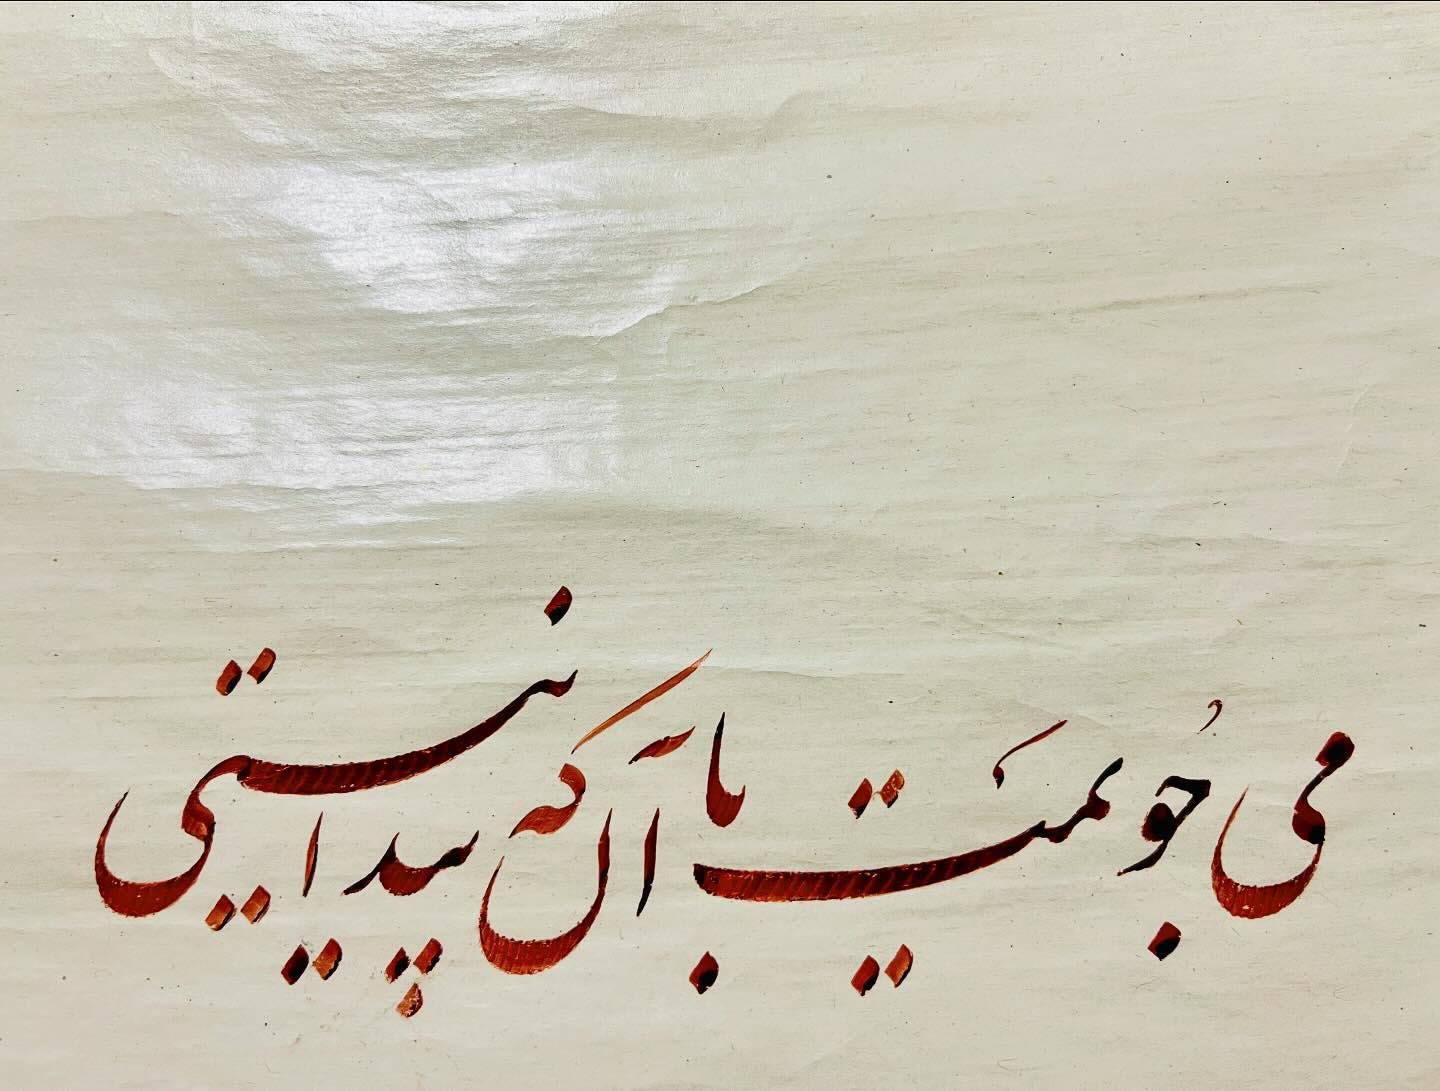 می جُویمیت با آن که پیدا نیستی